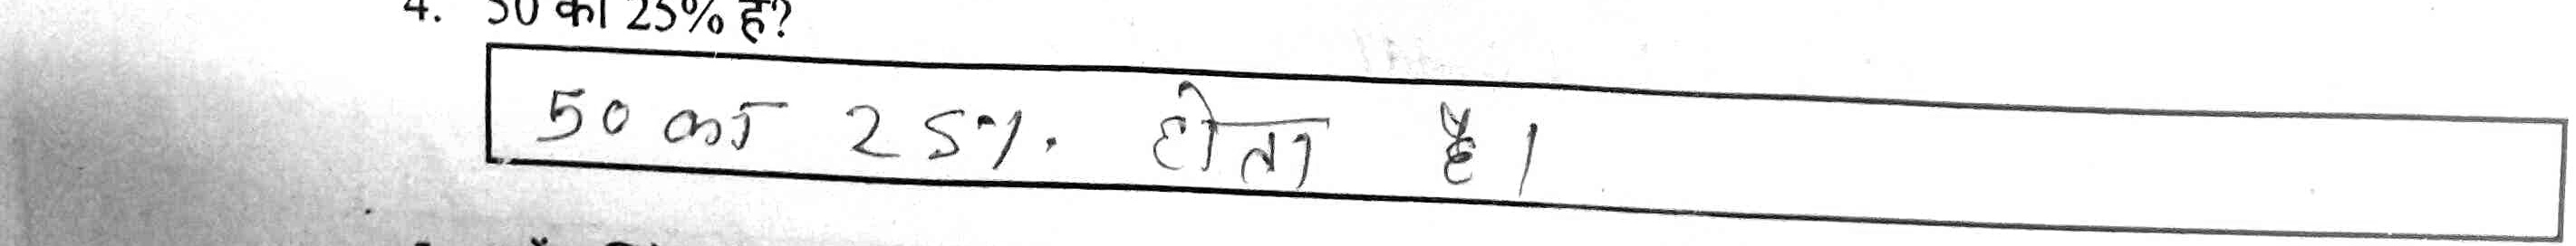 4. 50 का 25% है?
50 का 25%. होता है।